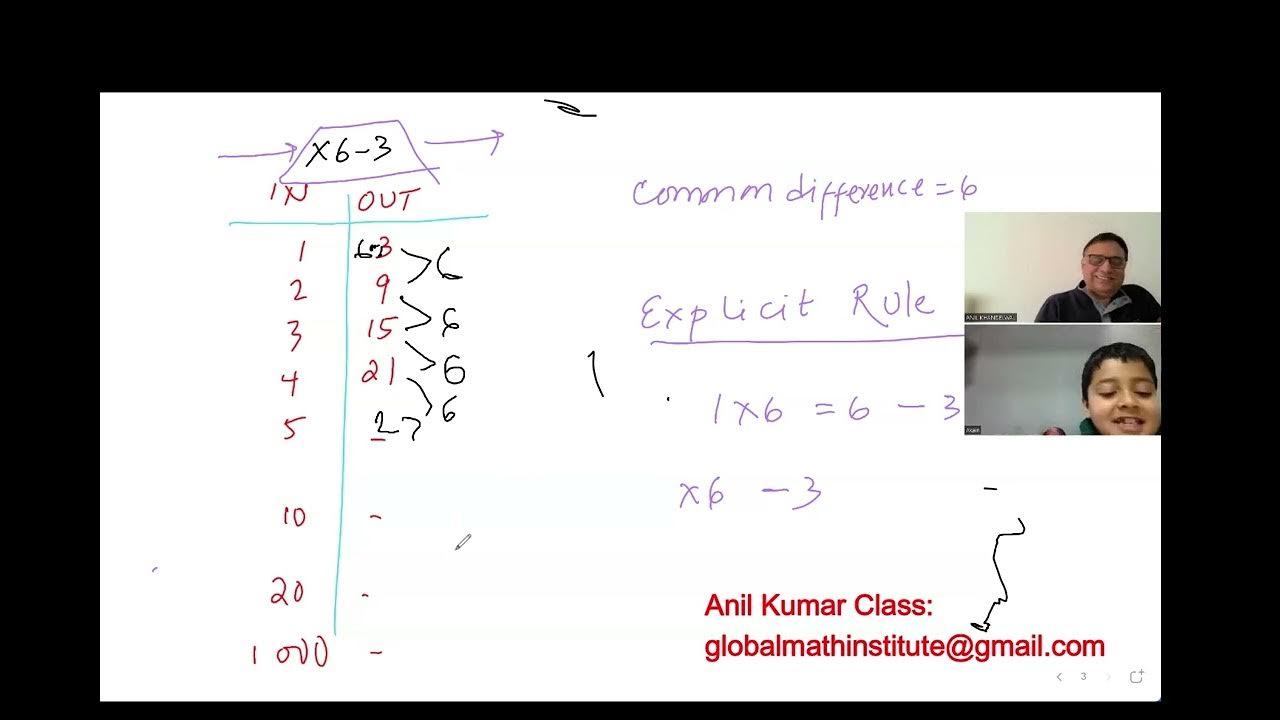 x6-3
IN OUT
1 6-3 3
2 9
3 15
4 21
5 27
10 -
20 -
1000 -
6
6
6
6
Common difference = 6
Explicit Rule
1x6 = 6 - 3
x6 - 3
ANIL KHANDELWAL
Anil Kumar Class:
globalmathinstitute@gmail.com
3